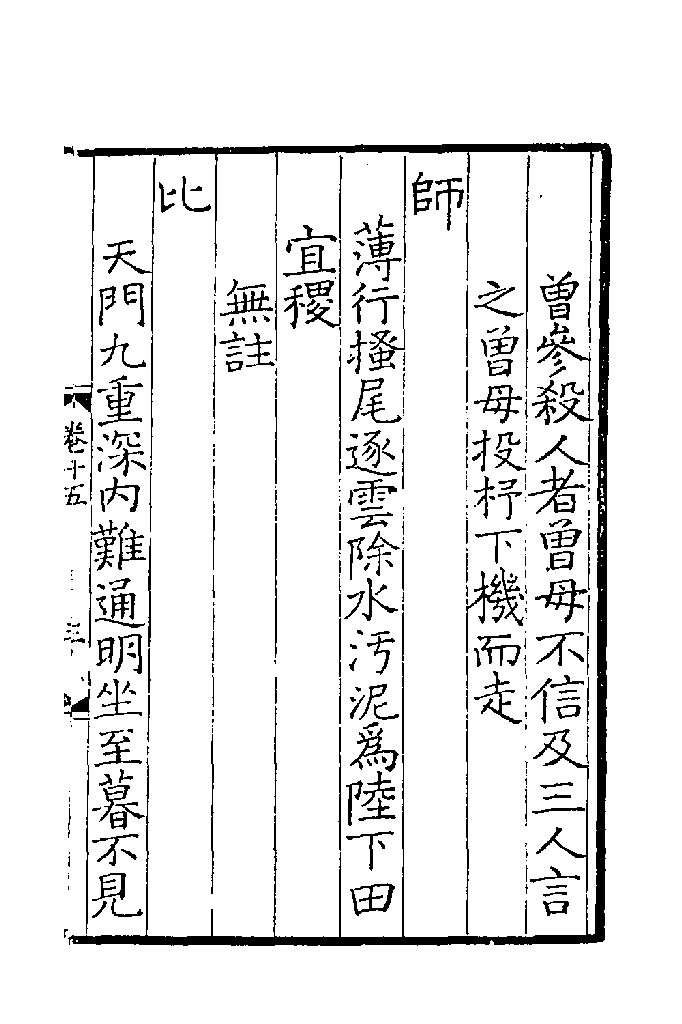 曽參殺人者曽母不信及三人言
之曽母投杼下機而走
師
薄行搔尾逐雲除水汚泥爲陸下田
宜稷
無註
比
天門九重深内難通明坐至暮不見
卷十五